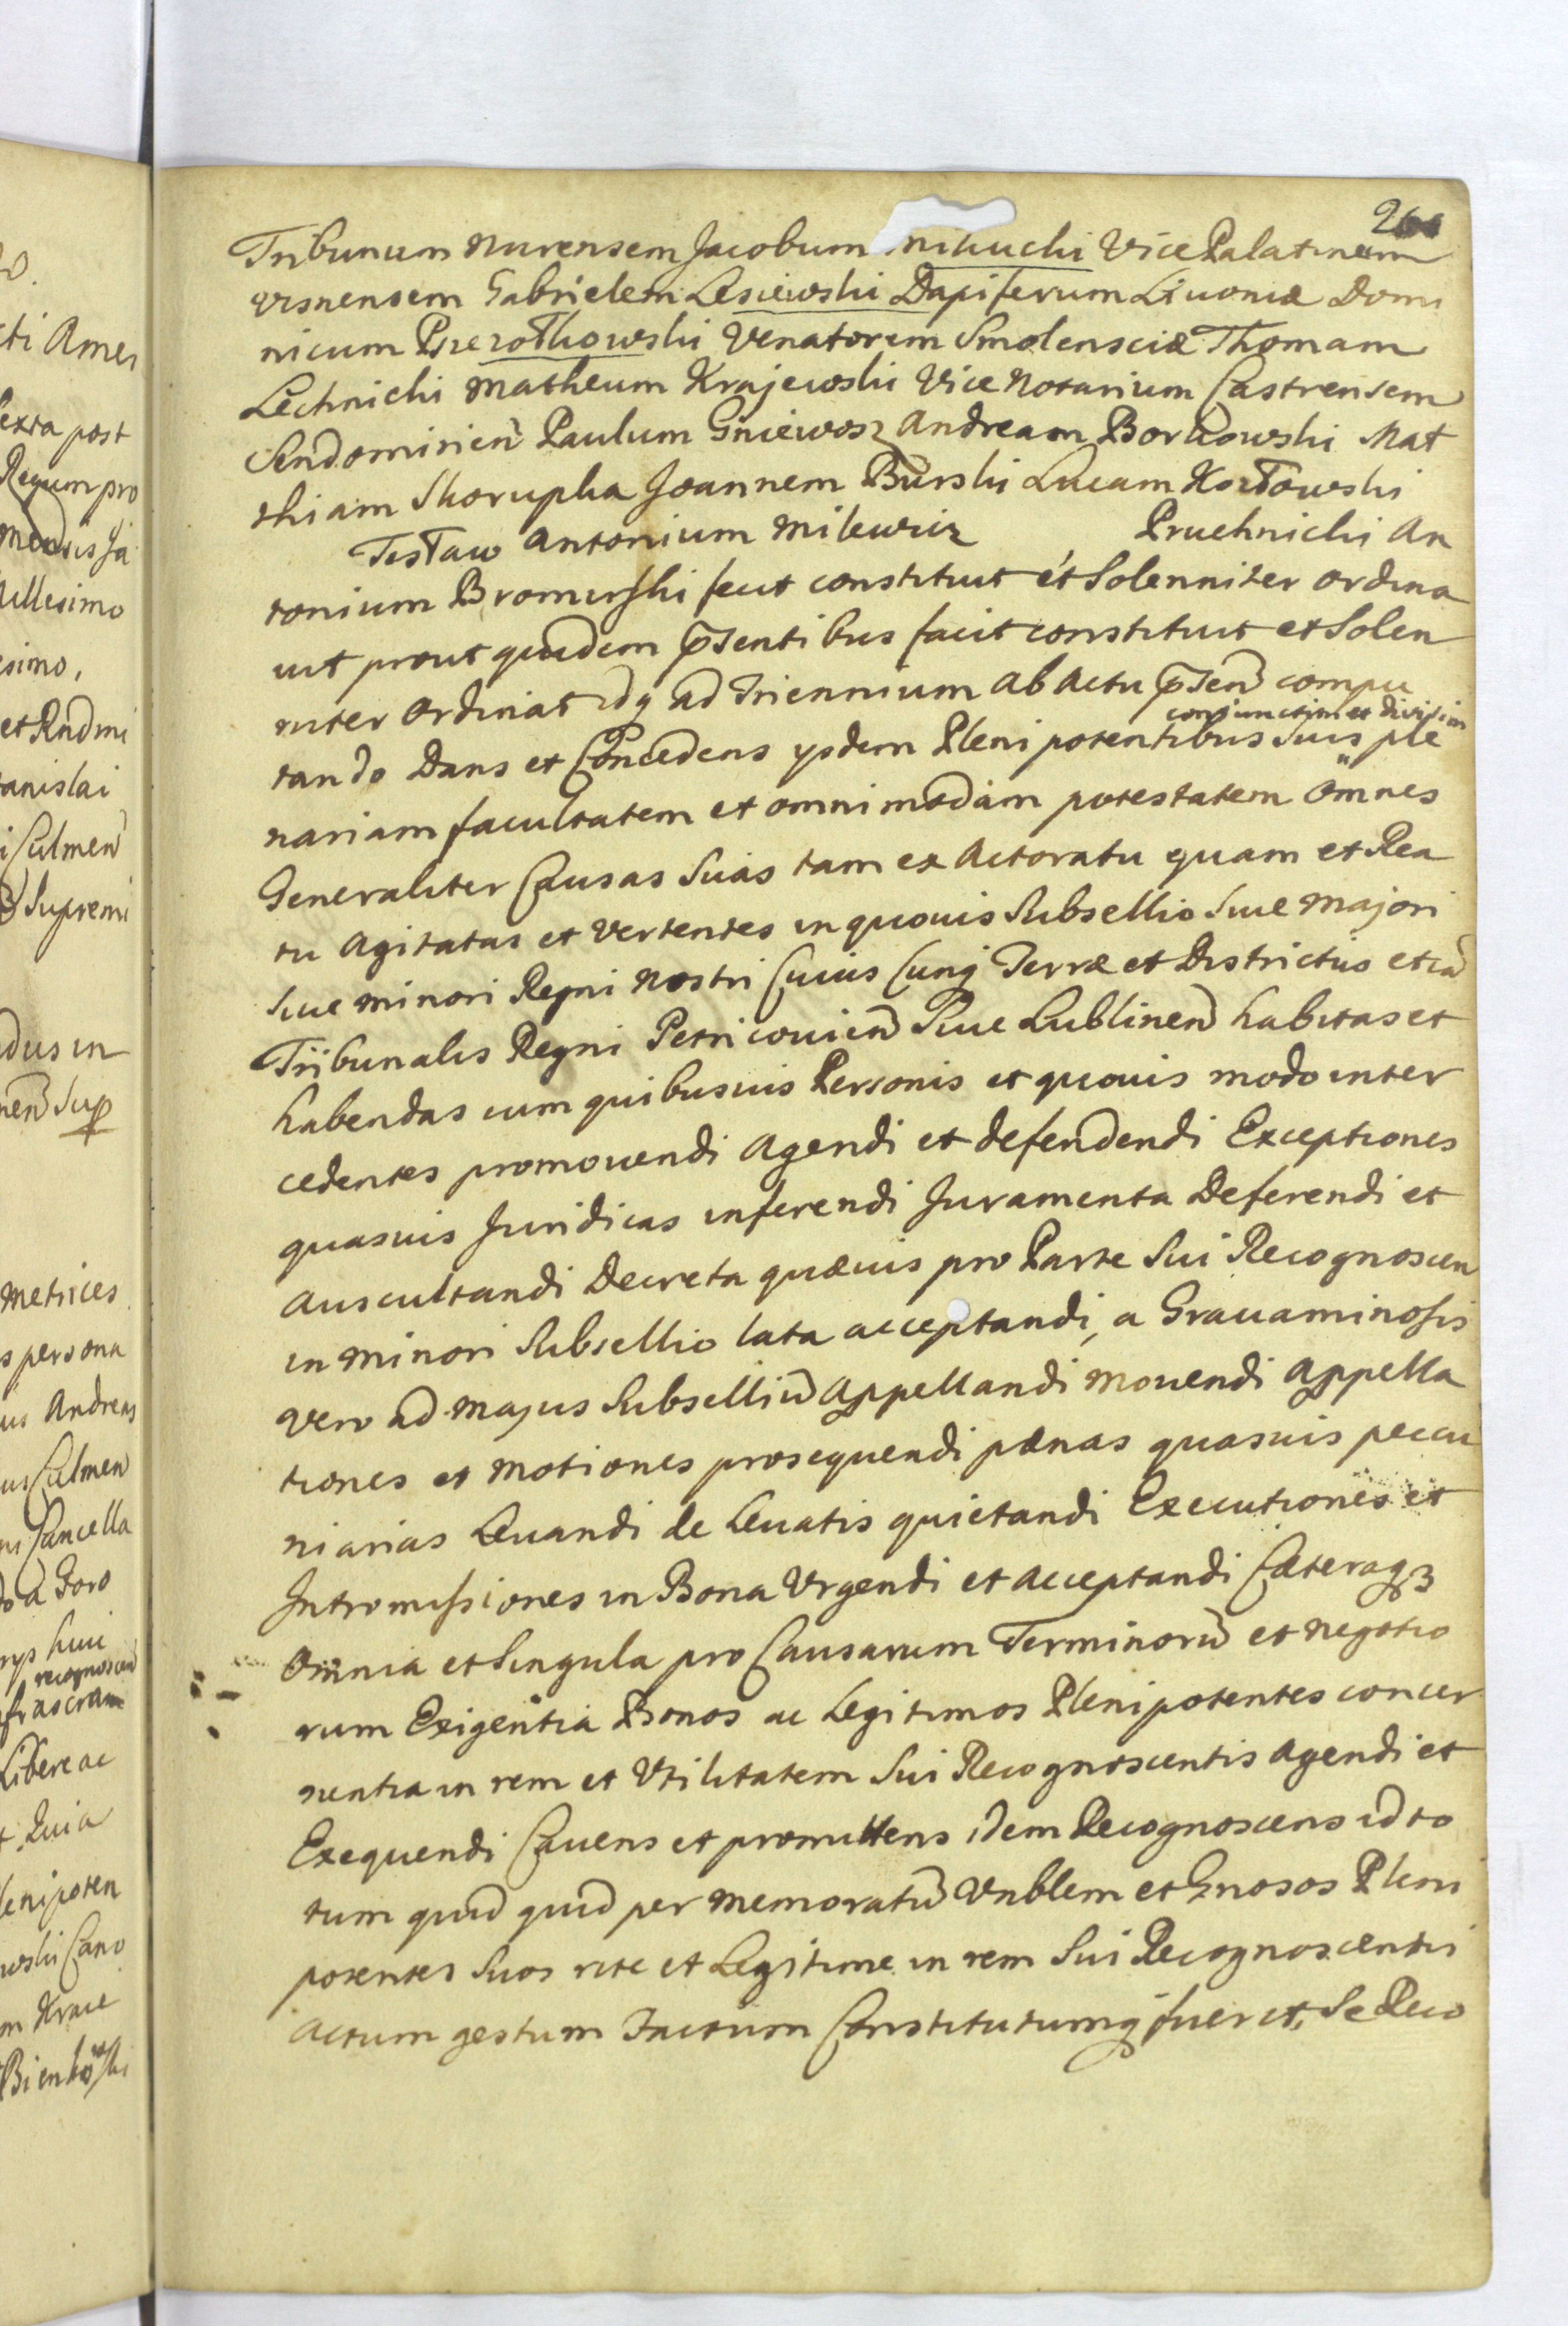 26
Tribunum Nurensem Jacobum nikucki Vice Palatinum
Visnensem Gabrielem Lesiewski Dapiferum Liuoniæ Domi
nicum Przezdthowski Venatorem Smolensciæ Thomam
Lechnicki Matheum Krajewski Vice Notarium Castrensem
Sendomirien Paulum Gniewosz Andream Borkowski Mat
thiam Skorupka Joannem Burski Lucam Kozłowski
Testaw Antonium Milewicz Pruchnicki An
tonium Bromirski fecit constituit et Solenniter ordina
uit prout quidem pñsentibus facit constituit et Solen
niter Ordinat idq ad Triennium ab Actu pñsen compu
conjunctim et divisim
tando Dans et Concedens ysdem Plenipotentibus Suis ple
nariam facultatem et omnimodam potestatem Omnes
Generaliter Causas Suas tam ex Actoratu quam et Rea
tu Agitatas et Vertentes in quouis Subsellio Siue Majori
Siue minori Regni Nostri Cuius Cunq Terræ et Districtus etiã
Tribunalis Regni Petricouien Siue Lublinen habitas et
habendas cum quibusuis Personis et quouis modo inter
cedentes promouendi Agendi et defendendi Exceptiones
quasuis Juridicas inferendi Juramenta Deferendi et
Auscultandi Decreta quæuis pro Parte Sui Recognoscen
in minori Subsellio lata acceptandi, a Grauaminosis
Vero ad Majus Subselliũ Appellandi Mouendi Appella
tiones et Motiones prosequendi pænas quasuis pecu
niarias Leuandi de Leuatis quietandi Executiones et
Intromissiones in Bona Vrgendi et Acceptandi Cæteraqz
Omnia et Singula pro Causarum Terminorũ et Negotio
rum Exigentia Bonos ac Legitimos Plenipotentes concer
nentia in rem et Vtilitatem Sui Recognoscentis Agendi et
Exequendi Cauens et promittens idem Recognoscens id to
tum quid quid per Memoratũ Vnblem et Gnosos Pleni
potentes Suos rite et Legitime in rem Sui Recognoscentis
Actum gestum Factum Constitutumq fuerit, Se Reco